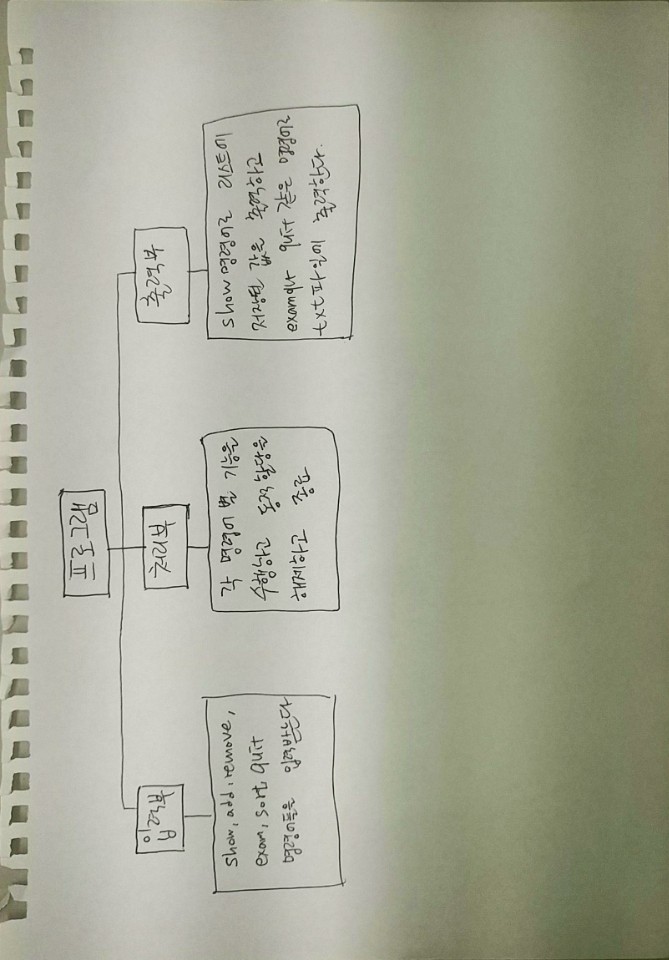 프로그램
입력부
show, add, remove,
exam, sort, quit
명령어들을 입력받는다
처리부
각 명령어 별 기능을
수행하고 동적할당을
해제하고 종료
출력부
show 명령어로 리스트에
저장된 값을 출력하고
exam이나 quit 같은 명령어로
txt파일에 출력한다.